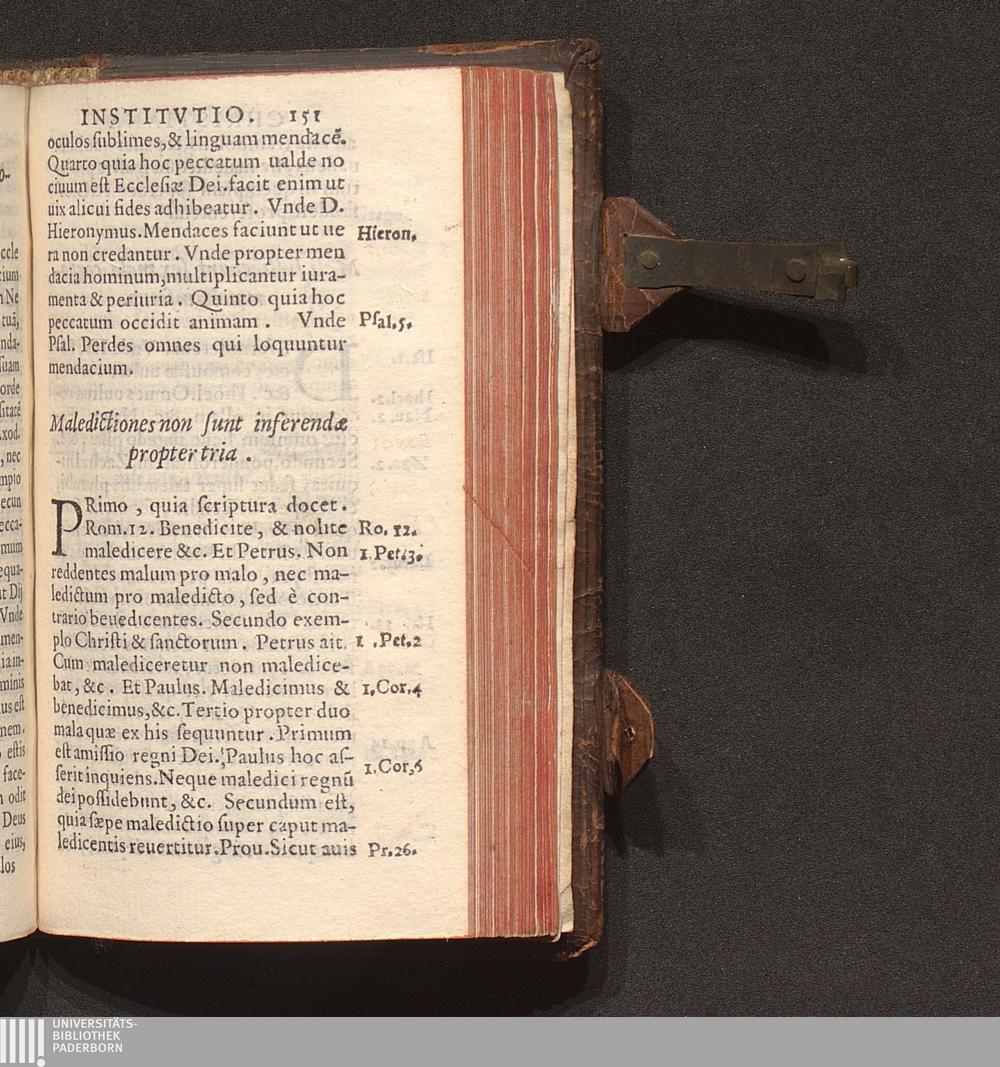 INSTITVTIO. 151
oculos ſublimes, & linguam mendacẽ.
Quarto quia hoc peccatum ualde no
ciuum eſt Eccleſiæ Dei. facit enim ut
uix alicui fides adhibeatur. Vnde D.
Hieronymus. Mendaces faciunt ut ue Hieron.
ra non credantur. Vnde propter men
dacia hominum, multiplicantur iura-
menta & periuria. Quinto quia hoc
peccatum occidit animam. Vnde Pſal. 5.
Pſal. Perdes omnes qui loquuntur
mendacium.
Maledictiones non ſunt inferendæ
propter tria.
PRimo, quia ſcriptura docet.
Rom. 12. Benedicite, & nolite Ro. 12.
maledicere &c. Et Petrus. Non 1. Pet. 3.
reddentes malum pro malo, nec ma-
ledictum pro maledicto, ſed è con-
trario benedicentes. Secundo exem-
plo Chriſti & ſanctorum. Petrus ait. 1. Pet. 2
Cum malediceretur non maledice-
bat, &c. Et Paulus. Maledicimus & 1. Cor. 4
benedicimus, &c. Tertio propter duo
mala quæ ex his ſequuntur. Primum
eſt amiſſio regni Dei. Paulus hoc aſ-
ſerit inquiens. Neque maledici regnũ 1. Cor. 6
dei poſſidebunt, &c. Secundum eſt,
quia ſæpe maledictio ſuper caput ma-
ledicentis reuertitur. Prou. Sicut auis Pr. 26.
UNIVERSITÄTS-
BIBLIOTHEK
PADERBORN